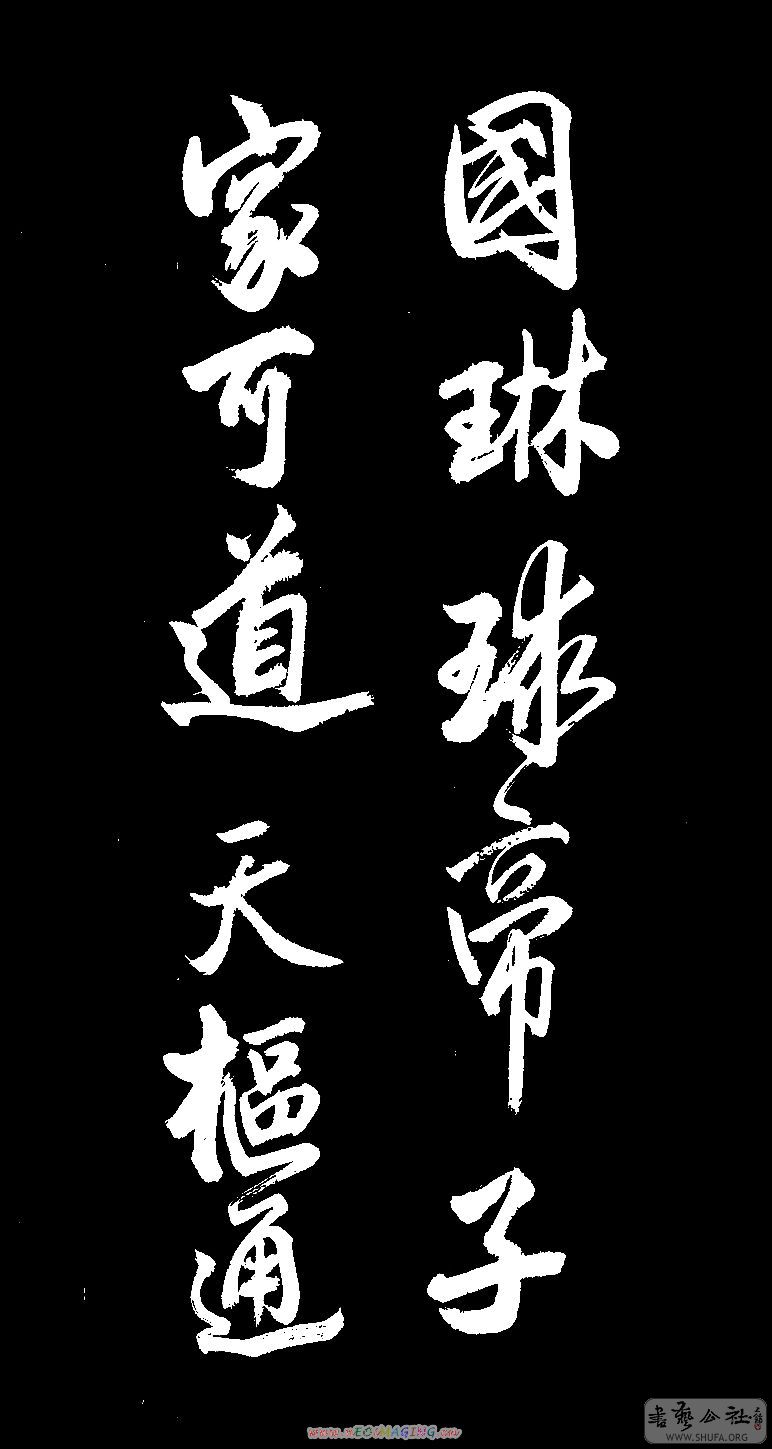 國琳球帝子
家可道天樞通
書藝公社
WWW.SHUFA.ORG